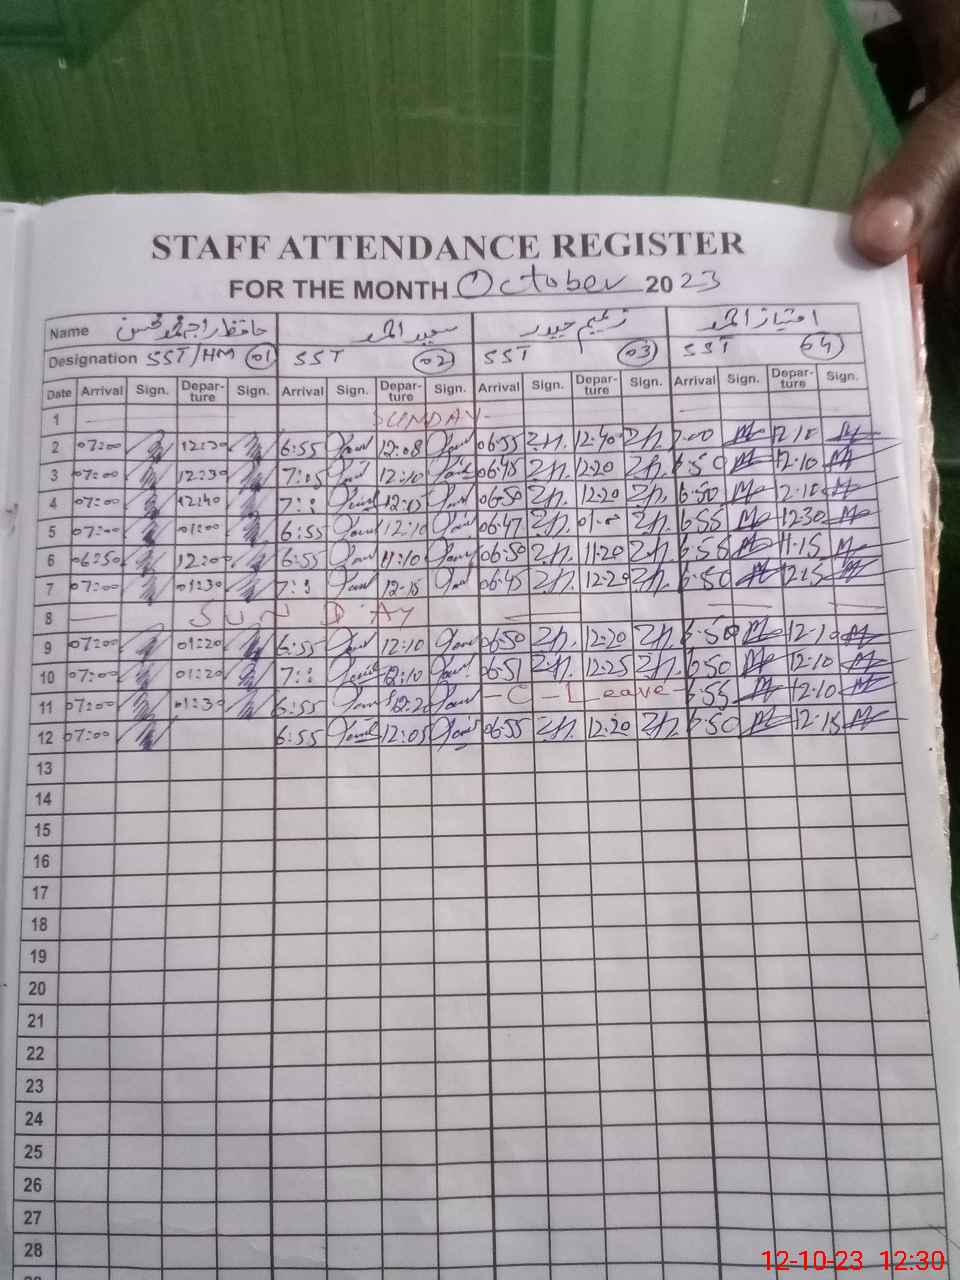 STAFF ATTENDANCE REGISTER
FOR THE MONTH October 2023
Name سعید احمد زعیم حیدر امتیاز احمد
Designation SST/HM 01 SST 02 SST 03 SST 04
Date Arrival Sign. Depar-ture Sign. Arrival Sign. Depar-ture Sign. Arrival Sign. Depar-ture Sign. Arrival Sign. Depar-ture Sign.
1 SUNDAY
2 07:00 12:30 6:55 12:08 06:55 12:40 7:00 12:10
3 07:00 12:30 7:05 12:10 06:48 12:20 6:50 12:10
4 07:00 12:40 12:05 06:50 12:20 6:50 12:10
5 07:00 01:00 6:55 12:10 06:47 01:00 6:55 12:30
6 06:50 12:00 6:55 11:10 06:50 11:20 6:58 11:15
7 07:00 01:30 12:15 06:45 12:20 6:50 12:15
8 SUNDAY
9 07:00 01:20 6:55 12:10 06:50 12:20 6:50 12:10
10 07:00 01:20 12:10 06:51 12:25 6:50 12:10
11 07:00 01:30 6:55 12:20 - C - Leave - 6:55 12:10
12 07:00 6:55 12:05 06:55 12:20 6:50 12:15
13
14
15
16
17
18
19
20
21
22
23
24
25
26
27
28
12-10-23 12:30